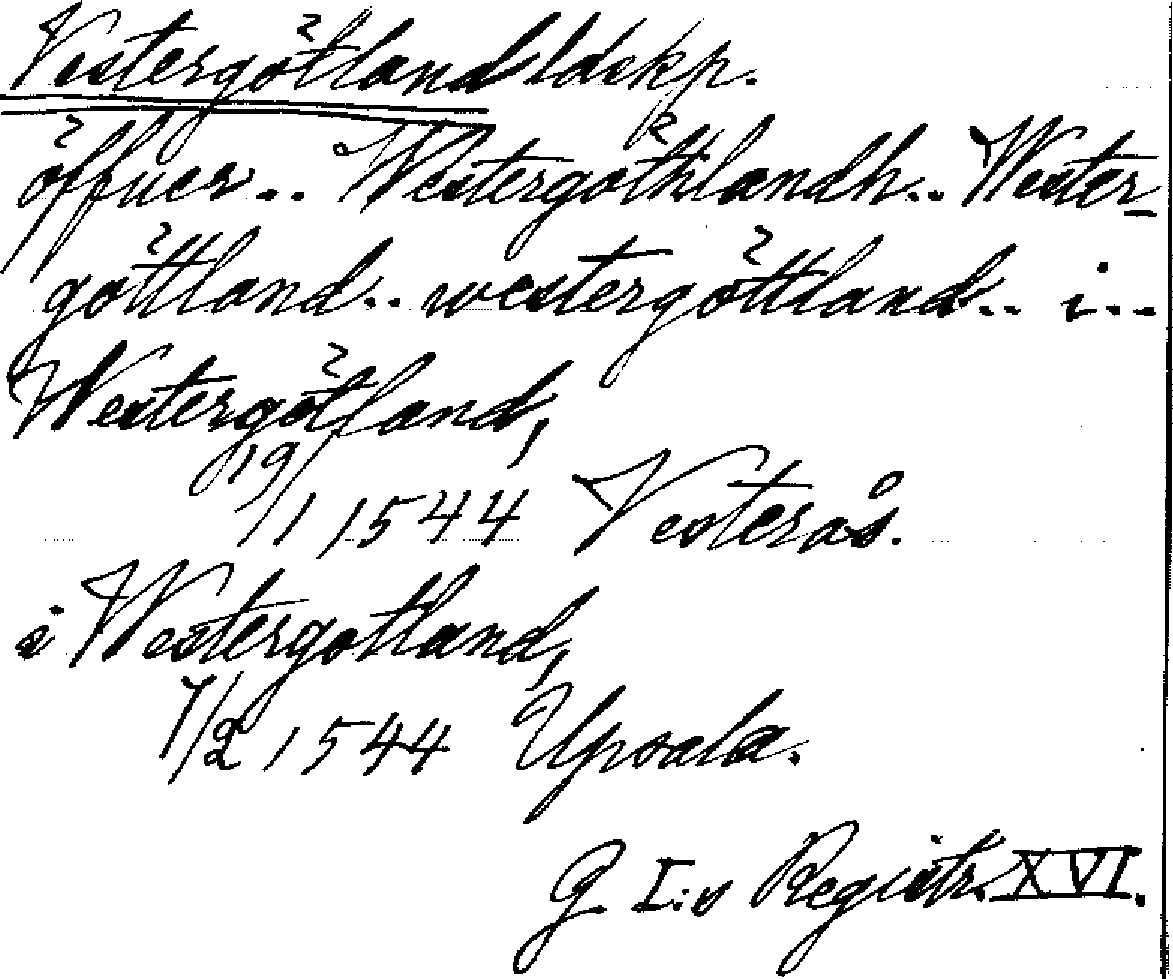 Västergötland ldskp.
öffuer.. Westergöthlandh.. Wester-
göttland.. westergöttland.. i..
Westergötland,
19/1 1544 Vesterås.
i Westergotland,
7/2 1544 Upsala.
G. I:s Registr. XVI.